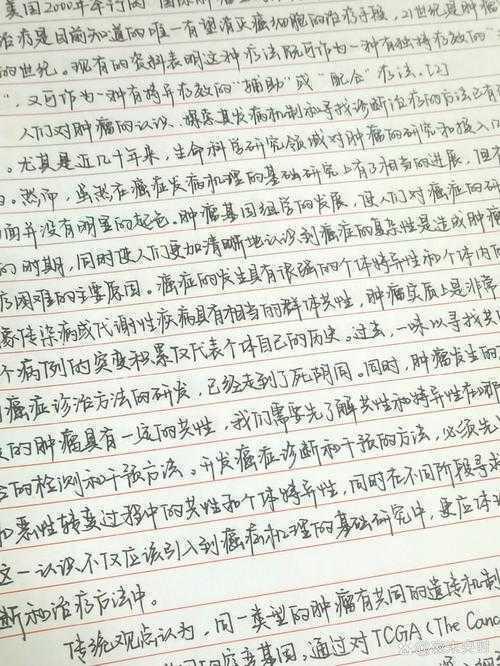 美国2000年举行的
治疗是目前知道的唯一有望消灭癌细胞的治疗手段, 21世纪是肿瘤
的世纪。现有的资料表明这种疗法既可作为一种有独特疗效的
", 又可作为一种有特异疗效的"辅助"或"配合"疗法.[2]
人们对肿瘤的认识、探索其发病机制和寻找诊断治疗的方法已有
。尤其是近几十年来, 生命科学研究领域对肿瘤的研究和投入
。然而, 虽然在癌症发病机理的基础研究上有了相当的进展, 但
面并没有明显的起色. 肿瘤基因组学的发展, 使人们对癌症的研
的时期, 同时使人们更加清晰地认识到癌症的复杂性是造成肿瘤
疗困难的主要原因。癌症的发生具有很强的个体特异性和个体内
像传染病或代谢性疾病具有相当的群体共性, 肿瘤实质上是非常
个病例的突变积累仅代表个体自己的历史。过去, 一味以寻找共
癌症诊治方法的研发, 已经走到了死阴同。同时, 肿瘤发生的
的肿瘤具有一定的共性, 我们需要先了解共性和特异性在哪
的检测和干预方法。开发癌症诊断和干预的方法, 必须先
恶性转变过程中的共性和个体特异性, 同时在不同阶段寻找
这一认识不仅应该引入到癌症机理的基础研究中, 更应体
断和治疗方法中。
传统观点认为, 同一类型的肿瘤有共同的遗传机制
的突变基因, 通过对TCGA (The Canc